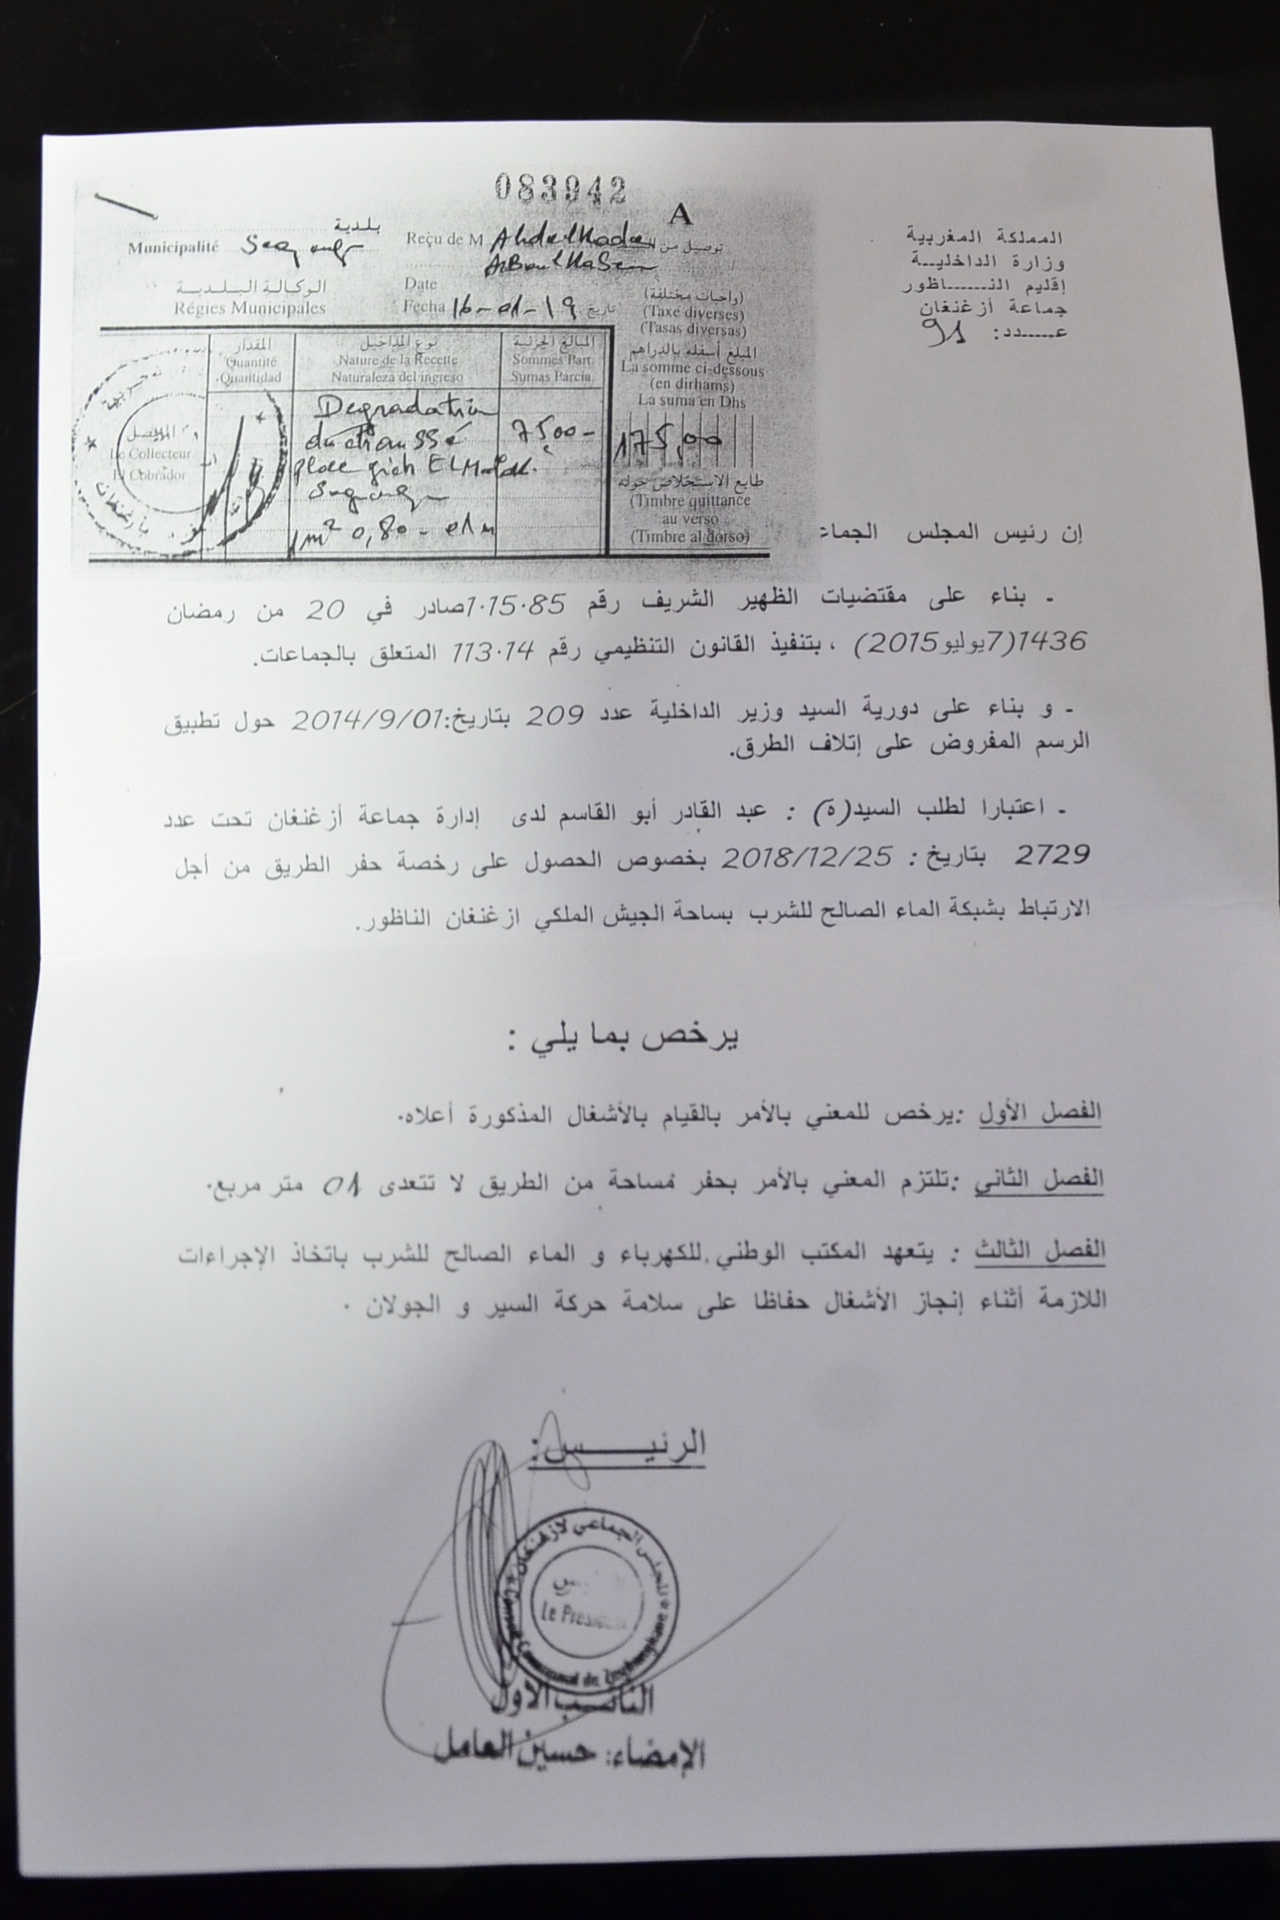 083942
A
بلدية
Municipalité
Reçu de M Abdelkader توصيل من
الوكالة البلدية
Régies Municipales
Date
Fecha 16-01-19 تاريخ
(واجبات مختلفة)
(Taxe diverses)
(Tasas diversas)
المبلغ أسفله بالدراهم
La somme ci-dessous
(en dirhams)
La suma en Dhs
175,00
طابع الاستخلاص حوله
(Timbre quittance
au verso
(Timbre al dorso)
المقدار
Quantité
Quantidad
نوع المداخيل
Nature de la Recette
Naturaleza del ingreso
المبالغ الجزئية
Sommes Part.
Sumas Parcia.
Degradation
du chaussé
place
1m² 0,80 - 01m
Le Collecteur
El Cobrador
المملكة المغربية
وزارة الداخليـة
إقليم النــــاظور
جماعة أزغنغان
عــــدد: 91
إن رئيس المجلس الجماع
- بناء على مقتضيات الظهير الشريف رقم 1.15.85صادر في 20 من رمضان
1436(7يوليو2015) ، بتنفيذ القانون التنظيمي رقم 113.14 المتعلق بالجماعات.
- و بناء على دورية السيد وزير الداخلية عدد 209 بتاريخ:2014/9/01 حول تطبيق
الرسم المفروض على إتلاف الطرق.
- اعتبارا لطلب السيد(ة) : عبد القادر أبو القاسم لدى إدارة جماعة أزغنغان تحت عدد
2729 بتاريخ : 2018/12/25 بخصوص الحصول على رخصة حفر الطريق من أجل
الارتباط بشبكة الماء الصالح للشرب بساحة الجيش الملكي ازغنغان الناظور.
يرخص بما يلي :
الفصل الأول :يرخص للمعني بالأمر بالقيام بالأشغال المذكورة أعلاه.
الفصل الثاني :تلتزم المعني بالأمر بحفر مساحة من الطريق لا تتعدى 01 متر مربع.
الفصل الثالث : يتعهد المكتب الوطني للكهرباء و الماء الصالح للشرب باتخاذ الإجراءات
اللازمة أثناء إنجاز الأشغال حفاظا على سلامة حركة السير و الجولان .
الرئيــــــس:
المجلس الجماعي لازغنغان
Le Président
النائب الأول
الإمضاء: حسين العامل